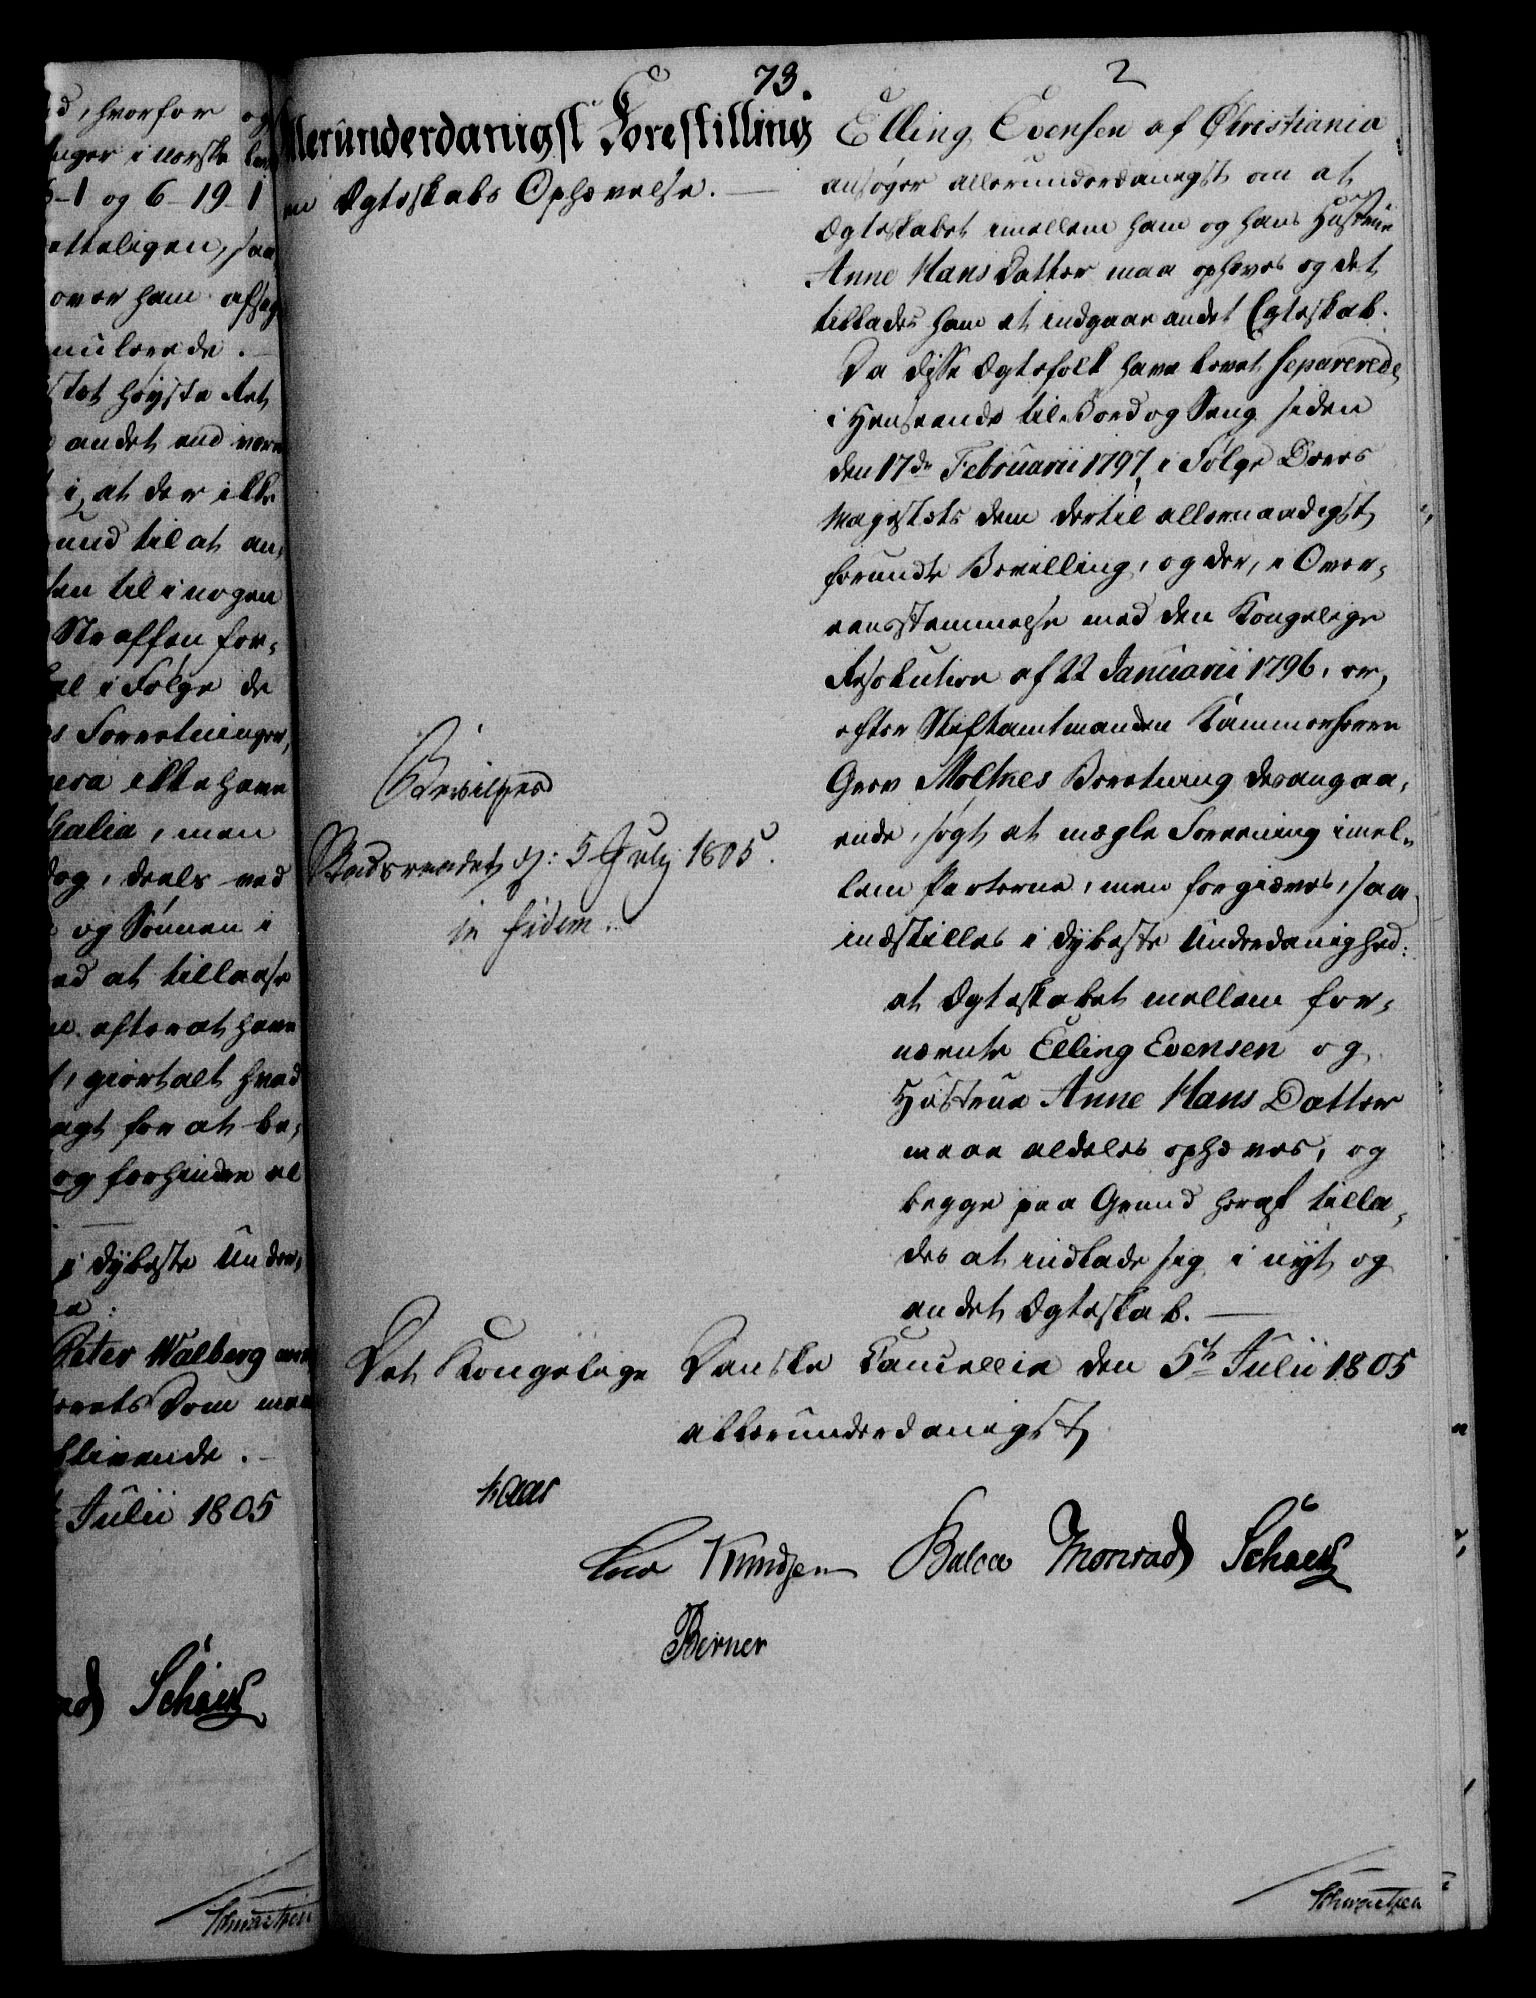 d, hvorfor og
6-1 og 6-19-1
ætteligen, saa
over ham afsag
mulerede.
andet end være
i, at der ikke
und til at an-
ten til i nogen
Straffen for-
i Følge de
Forretninger,
ikke have
thalia, men
dog, deels ved
og Sønnen i
ed at tillaase
efter at have
t, giort alt hvad
agt for at be-
og forhindre al
i dybeste Under-
Peter Walberg
rets Dom maa
blivende.
Julii 1805
Schack
73.
2
Allerunderdanigst Forestilling
om Ægteskabs Ophævelse.
Elling Evensen af Christiania
ansøger allerunderdanigst om at
Ægteskabet imellem ham og hans Hustrue
Anne Hans Datter maa ophæves og det
tillades ham at indgaae andet Egteskab.
Da disse Ægtefolk have levet separerede
i Henseende til Bord og Seng siden
den 17de Februarii 1797, i Følge Deres
Majestæts dem dertil allernaadigst
forundte Bevilling, og der, i Over-
eensstemmelse med den Kongelige
Resolution af 22 Januarii 1796, er,
efter Stiftamtmanden Kammerherre
Grev Moltkes Beretning desangaa-
ende, søgt at mægle Foreening imel-
lem Parterne, men forgiæves, saa
indstilles i dybeste Underdanighed:
at Ægteskabet mellem for-
nævnte Elling Evensen og
Hustrue Anne Hans Datter
maae aldeles ophæves, og
begge paa Grund heraf tilla-
des at indlade sig i nyt og
andet Ægteskab.
Bevilges
Stadsraadet d: 5 July 1805.
in fidem.
Det Kongelige Danske Cancellie den 5te Julii 1805
allerunderdanigst
Kaas
Knudsen Bülow Monrad Schack
Berner